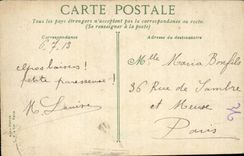 CARTE POSTALE
Tous les pays étrangers n'acceptent pas la correspondance au recto.
(Se renseigner à la poste)
Correspondance
Adresse du destinataire
6.7.13
gros baisers!
petite paresseuse!
Louise
Mlle Maria Bonfils
36 Rue de Sambre
et Meuse
Paris